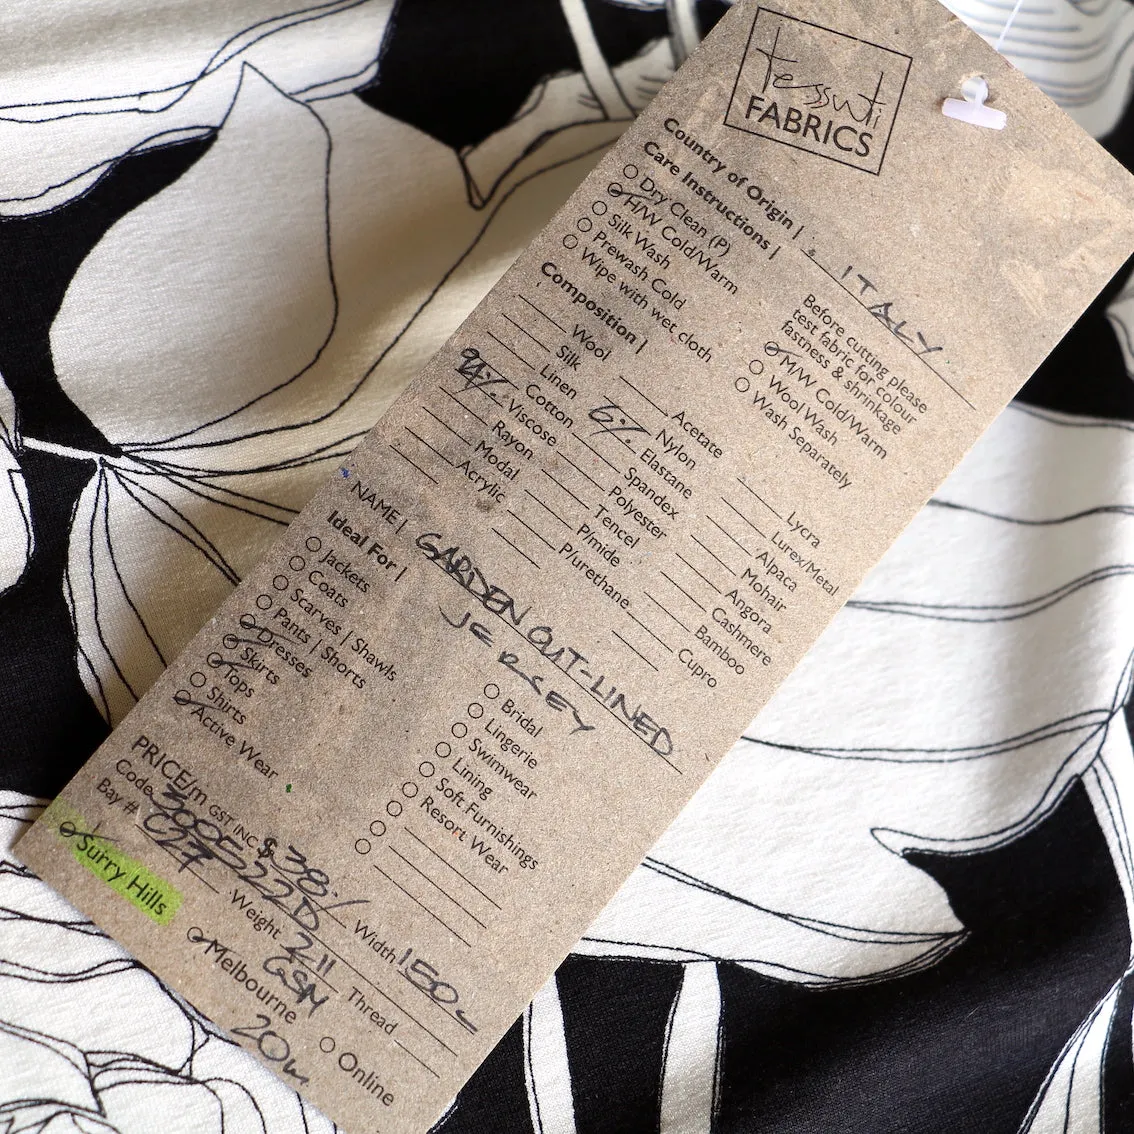 tessuti
FABRICS
Country of Origin | ITALY
Care Instructions |
Dry Clean (P)
H/W Cold/Warm
Silk Wash
Prewash Cold
Wipe with wet cloth
Before cutting please
test fabric for colour
fastness & shrinkage
M/W Cold/Warm
Wool Wash
Wash Separately
Composition |
Wool
Silk
Linen
Cotton
94% Viscose
Rayon
Modal
Acrylic
Acetate
Nylon
6% Elastane
Spandex
Polyester
Tencel
P/mide
P/urethane
Lycra
Lurex/Metal
Alpaca
Mohair
Angora
Cashmere
Bamboo
Cupro
NAME | GARDEN OUT-LINED
JERSEY
Ideal For |
Jackets
Coats
Scarves | Shawls
Pants | Shorts
Dresses
Skirts
Tops
Shirts
Active Wear
Bridal
Lingerie
Swimwear
Lining
Soft Furnishings
Resort Wear
PRICE/m GST INC $38.
Code
Bay # C27
Width 150c
Weight 211
GSM
Thread
Surry Hills
Melbourne
Online
20m